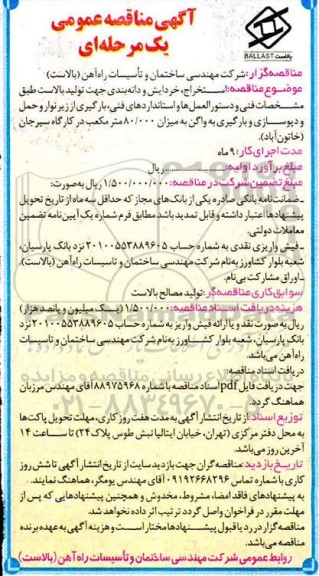 آگهی مناقصه عمومی
یک مرحله‌ای
بالاست BALLAST
مناقصه‌گزار: شرکت مهندسی ساختمان و تأسیسات راه‌آهن (بالاست)
موضوع مناقصه: استخراج، خردایش و دانه‌بندی جهت تولید بالاست طبق
مشخصات فنی و دستورالعمل‌ها و استانداردهای فنی، بارگیری از زیر نوار و حمل
و دپوسازی و بارگیری به واگن به میزان ۸۰/۰۰۰ متر مکعب در کارگاه سیرجان
(خاتون‌آباد).
مدت اجرای کار: ۹ ماه
مبلغ برآورد اولیه: ریال
مبلغ تضمین شرکت در مناقصه: ۱/۵۰۰/۰۰۰/۰۰۰ ریال به‌صورت:
ـ ضمانت‌نامه بانکی صادره یکی از بانک‌های مجاز که حداقل سه ماه از تاریخ تحویل
پیشنهادها اعتبار داشته و قابل تمدید باشد مطابق فرم شماره یک آیین‌نامه تضمین
معاملات دولتی.
ـ فیش واریزی نقدی به شماره حساب ۲۰۱۰۰۵۵۳۸۸۹۶۰۵ نزد بانک پارسیان،
شعبه بلوار کشاورز به‌نام شرکت مهندسی ساختمان و تاسیسات راه‌آهن (بالاست).
ـ اوراق مشارکت بی‌نام.
سوابق کاری مناقصه‌گر: تولید مصالح بالاست
هزینه دریافت اسناد مناقصه: ۱/۵۰۰/۰۰۰ (یک میلیون و پانصد هزار)
ریال به صورت نقد و یا ارائه فیش واریز به شماره حساب ۲۰۱۰۰۵۵۳۸۸۹۶۰۵ نزد
بانک پارسیان، شعبه بلوار کشاورز به‌نام شرکت مهندسی ساختمان و تاسیسات
راه‌آهن می‌باشد.
دریافت اسناد مناقصه:
جهت دریافت فایل pdf اسناد مناقصه با شماره ۸۸۹۷۵۹۶۸ آقای مهندس مرزبان
هماهنگ گردد.
توزیع اسناد: از تاریخ انتشار آگهی به مدت هفت روز کاری، مهلت تحویل پاکت‌ها
به محل دفتر مرکزی (تهران، خیابان ایتالیا نبش طوس پلاک ۲۴) تا ساعت ۱۴
آخرین روز می‌باشد.
تاریخ بازدید: مناقصه‌گران جهت بازدید سایت از تاریخ انتشار آگهی تا شش روز
کاری با شماره تماس ۰۹۱۹۲۶۶۸۲۹۶ آقای مهندس پومگر، هماهنگ نمایند.
به پیشنهادهای فاقد امضا، مشروط، مخدوش و همچنین پیشنهادهایی که پس از
مهلت مقرر در فراخوان واصل گردد ترتیب اثر داده نخواهد شد.
مناقصه‌گزار در رد یا قبول پیشنهادها مختار است و هزینه آگهی به عهده برنده
مناقصه می‌باشد.
روابط عمومی شرکت مهندسی ساختمان و تأسیسات راه‌آهن (بالاست)